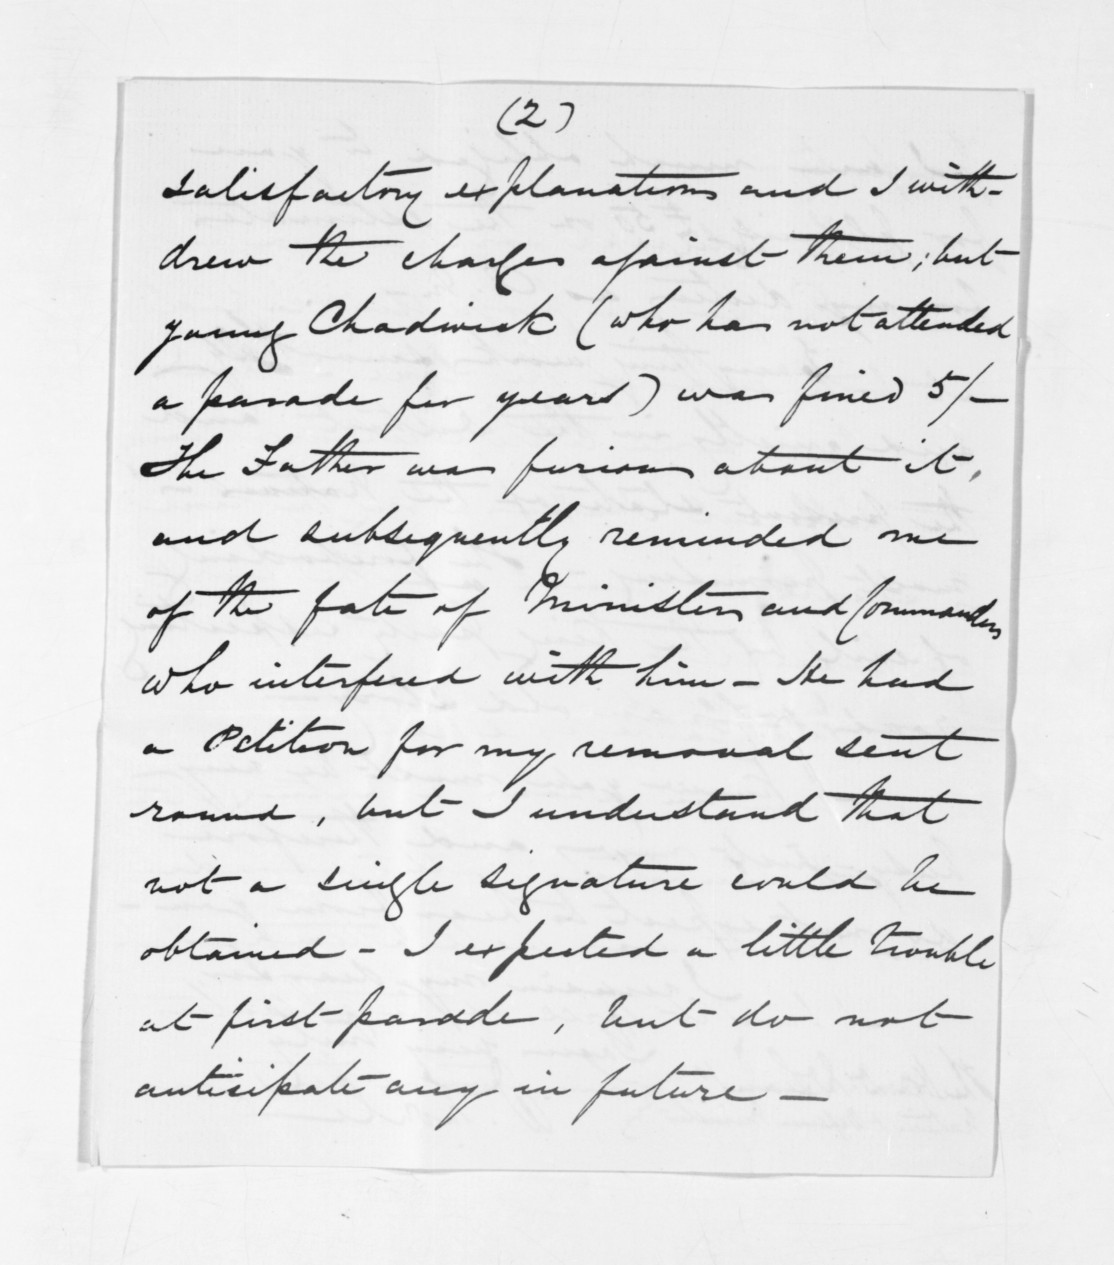 (2)
satisfactory explanations and I with-
drew the charges against them; but
young Chadwick (who has not attended
a parade for years) was fined 5/-
The Father was furious about it,
and subsequently reminded me
of the fate of Ministers and Commanders
who interfered with him - He had
a Petition for my removal sent
round, but I understand that
not a single signature could be
obtained - I expected a little trouble
at first parade, but do not
antisipate any in future -